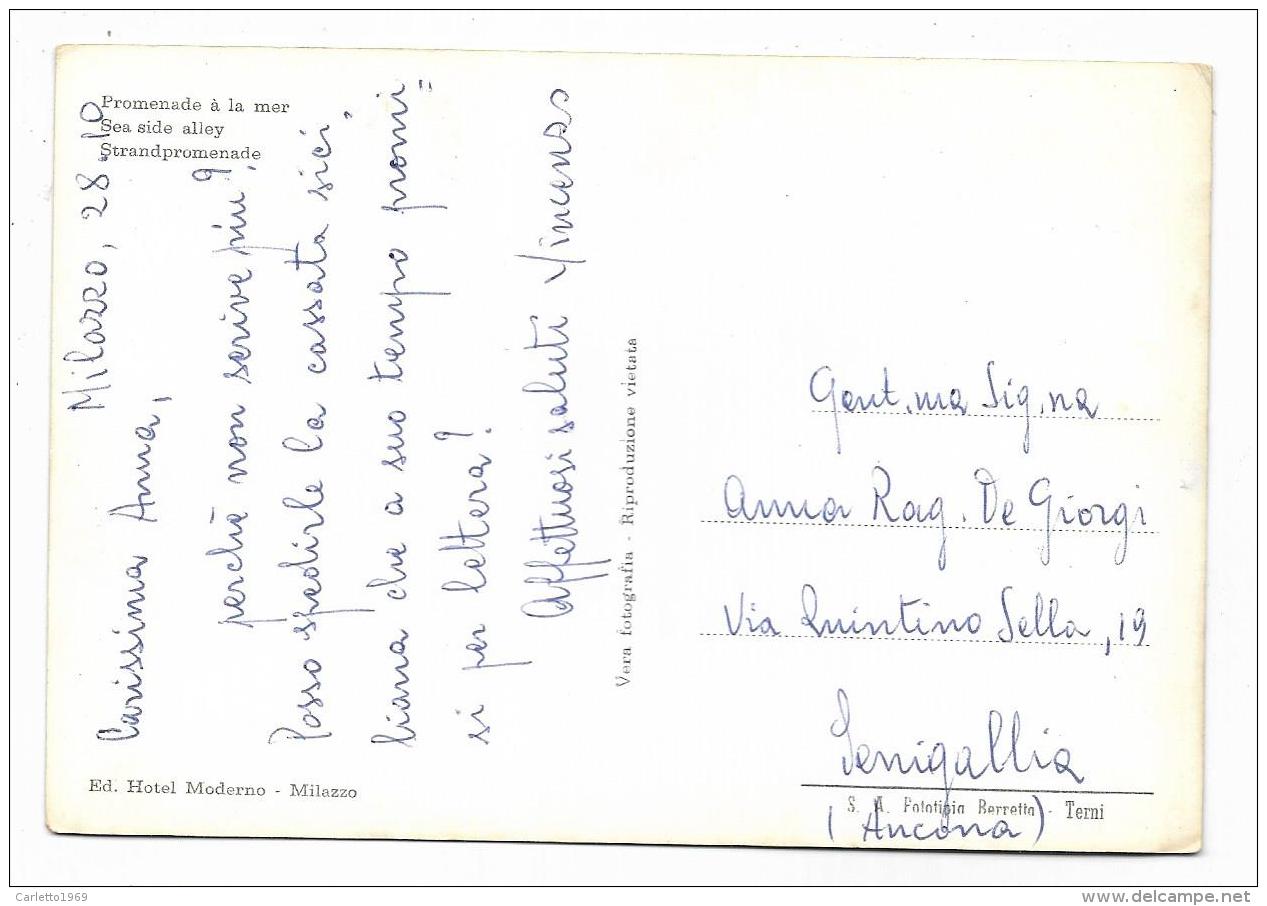 Promenade à la mer
Sea side alley
Strandpromenade
Milazzo, 28.10
Carissima Anna,
perchè non scrive più?
Posso spedirle la cassata sici,
liana che a suo tempo promi=
si per lettera?
Affettuosi saluti Vincenzo
Ed. Hotel Moderno - Milazzo
Vera fotografia - Riproduzione vietata
Gent.ma Sig.na
Anna Rag. De Giorgi
Via Quintino Sella, 19
Senigallia
S. A. Fototipia Berretta - Terni
(Ancona)
Carletto1969
delcampe.net